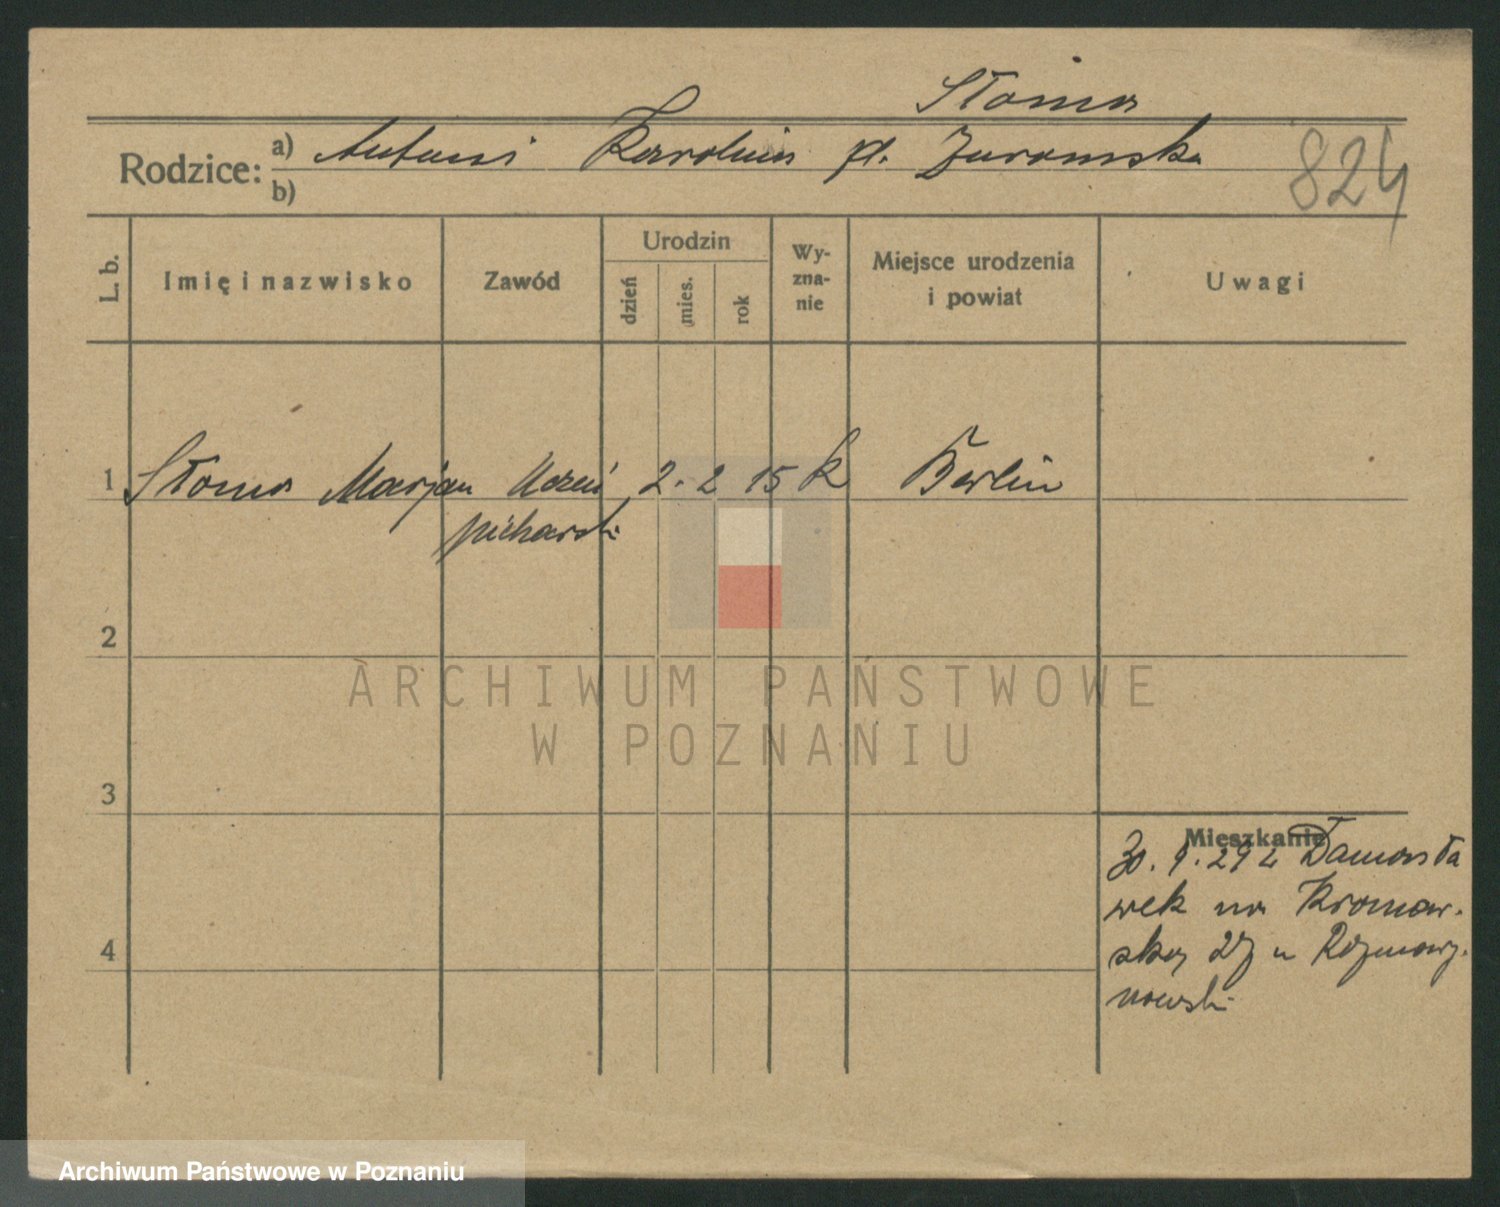 Słoma
Rodzice: a) Antoni Karolina
b)
824
L. b. Imię i nazwisko Zawód Urodzin dzień mies. rok Wyznanie Miejsce urodzenia i powiat Uwagi
1 Słoma Marjan Uczeń 2. 2 15 k Berlin
piekarski
2
ARCHIWUM PAŃSTWOWE
W POZNANIU
3
Mieszkanie
30. 9. 29 z Damosła
wek na
27 u
nowski
4
Archiwum Państwowe w Poznaniu